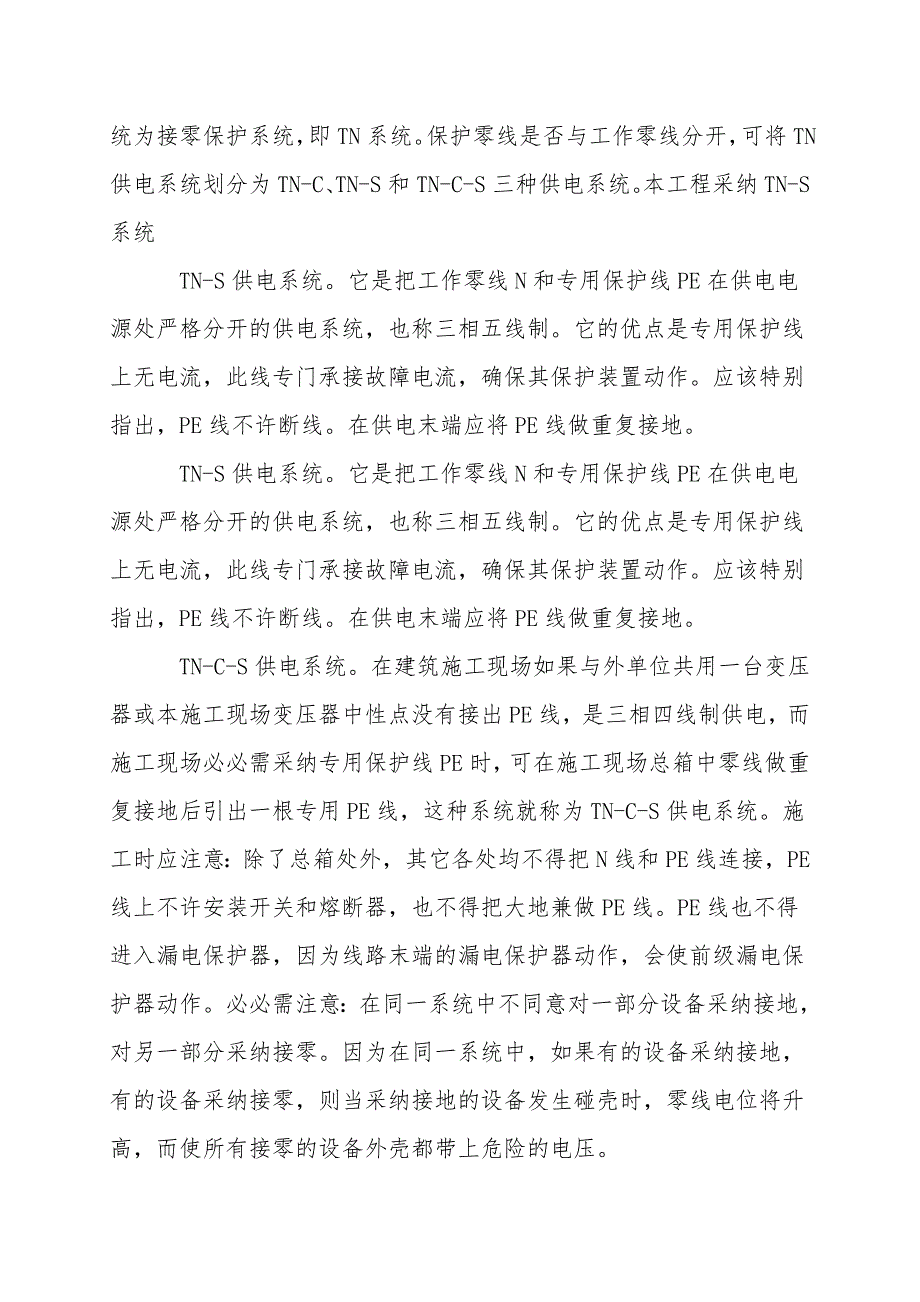 统为接零保护系统,即 TN 系统。保护零线是否与工作零线分开,可将 TN
供电系统划分为 TN-C、TN-S 和 TN-C-S 三种供电系统。本工程采纳 TN-S
系统
TN-S 供电系统。它是把工作零线 N 和专用保护线 PE 在供电电
源处严格分开的供电系统，也称三相五线制。它的优点是专用保护线
上无电流，此线专门承接故障电流，确保其保护装置动作。应该特别
指出，PE 线不许断线。在供电末端应将 PE 线做重复接地。
TN-S 供电系统。它是把工作零线 N 和专用保护线 PE 在供电电
源处严格分开的供电系统，也称三相五线制。它的优点是专用保护线
上无电流，此线专门承接故障电流，确保其保护装置动作。应该特别
指出，PE 线不许断线。在供电末端应将 PE 线做重复接地。
TN-C-S 供电系统。在建筑施工现场如果与外单位共用一台变压
器或本施工现场变压器中性点没有接出 PE 线，是三相四线制供电，而
施工现场必必需采纳专用保护线 PE 时，可在施工现场总箱中零线做重
复接地后引出一根专用 PE 线，这种系统就称为 TN-C-S 供电系统。施
工时应注意：除了总箱处外，其它各处均不得把 N 线和 PE 线连接，PE
线上不许安装开关和熔断器，也不得把大地兼做 PE 线。PE 线也不得
进入漏电保护器，因为线路末端的漏电保护器动作，会使前级漏电保
护器动作。必必需注意：在同一系统中不同意对一部分设备采纳接地，
对另一部分采纳接零。因为在同一系统中，如果有的设备采纳接地，
有的设备采纳接零，则当采纳接地的设备发生碰壳时，零线电位将升
高，而使所有接零的设备外壳都带上危险的电压。